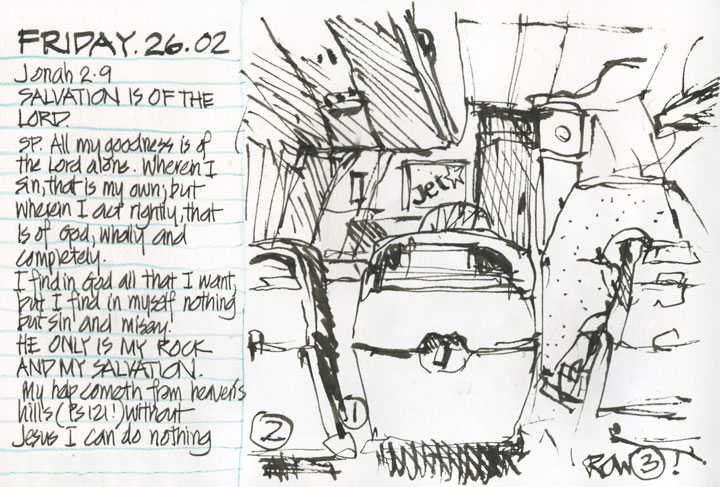 FRIDAY. 26. 02
Jonah 2.9
SALVATION IS OF THE
LORD.
SP. All my goodness is of
the Lord alone. Wherein I
sin, that is my own; but
wherein I act rightly, that
is of God, wholly and
completely.
I find in God all that I want,
but I find in myself nothing
but sin and misery.
HE ONLY IS MY ROCK
AND MY SALVATION.
My help cometh from heaven's
hills (Ps 121!) without
Jesus I can do nothing
Jet
2
1
ROW 3!